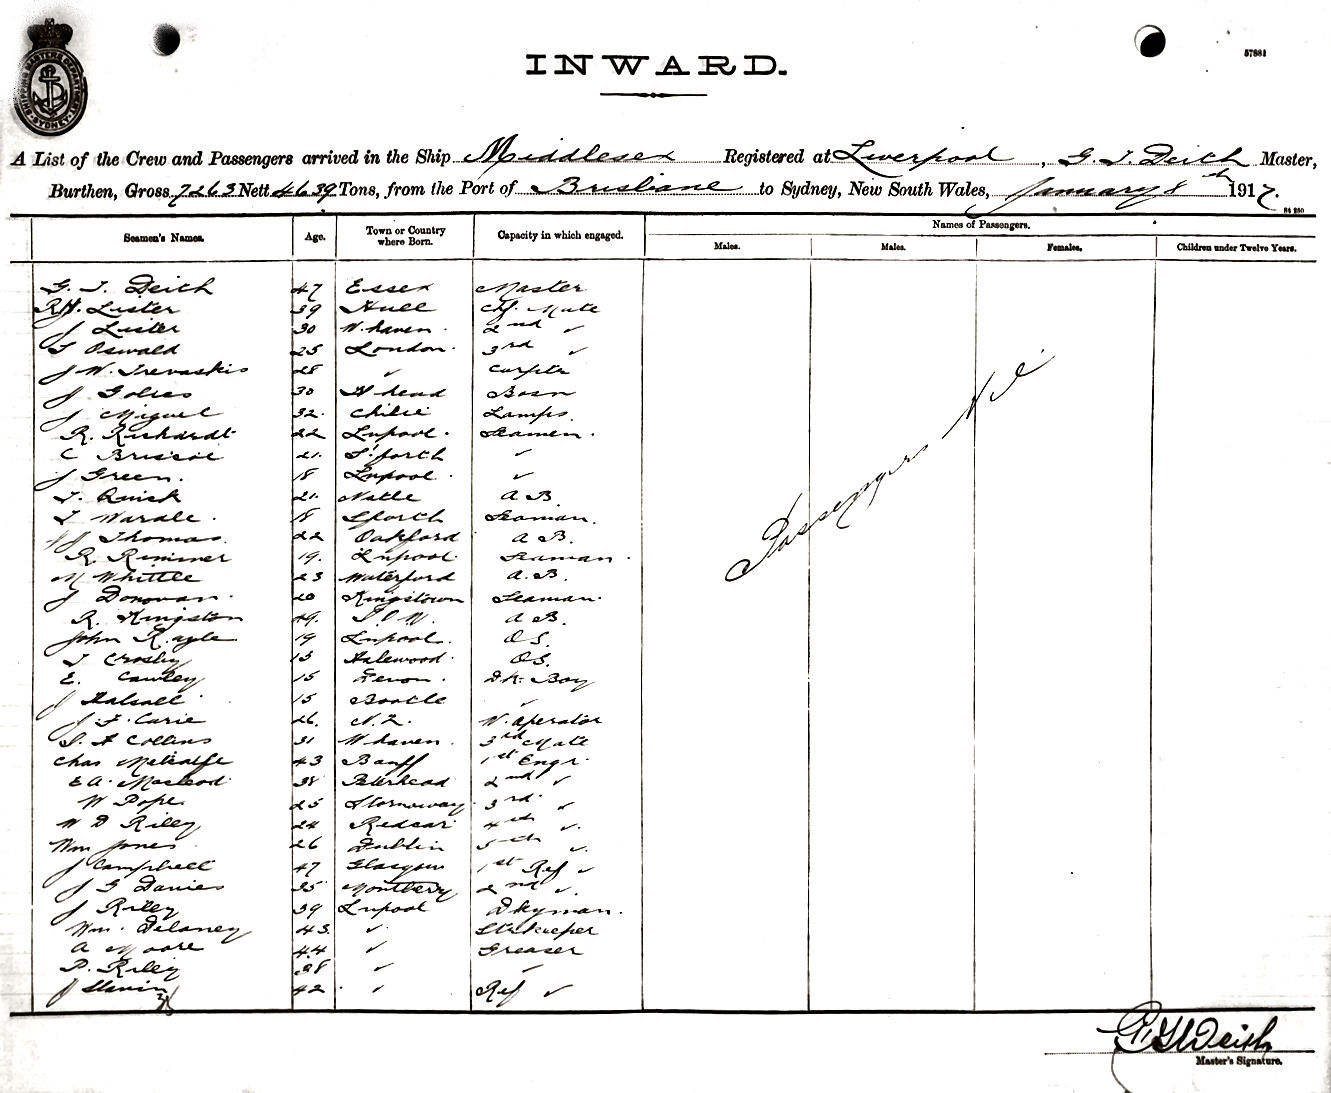 SHIPPING MASTERS DEPARTMENT SYDNEY
57881
INWARD.
A List of the Crew and Passengers arrived in the Ship Middlesex Registered at Liverpool, G. T. Deith Master,
Burthen, Gross 7263 Nett 4639 Tons, from the Port of Brisbane to Sydney, New South Wales, January 8th 1917.
Seamen's Names. Age. Town or Country where Born. Capacity in which engaged. Names of Passengers.
Males. Males. Females. Children under Twelve Years.
G. T. Deith 47 Essex Master
R.H. Lister 39 Hull Chf. Mate
J Lister 30 W.haven 2nd ✓
T Oswald 25 London. 3rd ✓
J W. Trevaskis 28 ✓ Carptr
J 30 B'head Bosn
J Miguel 32. Chilie Lamps.
R. 22 Lupool. Seamen.
C Briscoe 21. S'forth ✓
J Green. 18 Lupool. ✓
T. Quick 21. A B
T Wardle. 18 Sforth Seaman.
J Thomas. 22 Oakford A B.
R. Rimmer 19. Lupool Seaman.
M Whittle 23 Waterford A. B.
J Donovan. 20 Kingstown Seaman.
R. Kingston 49. I O W. A B.
John 19 Lupool. O S.
T Crosby 15 Halewood. OS.
E. Cawley 15 Devon. Dk. Boy
J Halsall 15 Bootle ✓
J F. Carie 26. N. Z. W. operator
S. A Collins 31 W haven. 3rd Mate
Chas Metcalfe 43 Banff 1st Engr.
E A. Macleod 38 Peterhead 2nd ✓
W Pope 25 Stornoway 3rd ✓
W D Riley 24 Redcar 4th ✓
Wm Jones 26 Dublin 5th ✓
J Campbell 47 Glasgow 1st Ref ✓
J G Davies 35 2nd ✓
J Riley 39 Lupool Dkyman.
Wm. Delaney 43. ✓ Strkeeper
A Moore 44 ✓ Greaser
P. Riley 38 ✓ ✓
J Slavin 42 ✓ Ref ✓
Passengers Nil
G T Deith
Master's Signature.